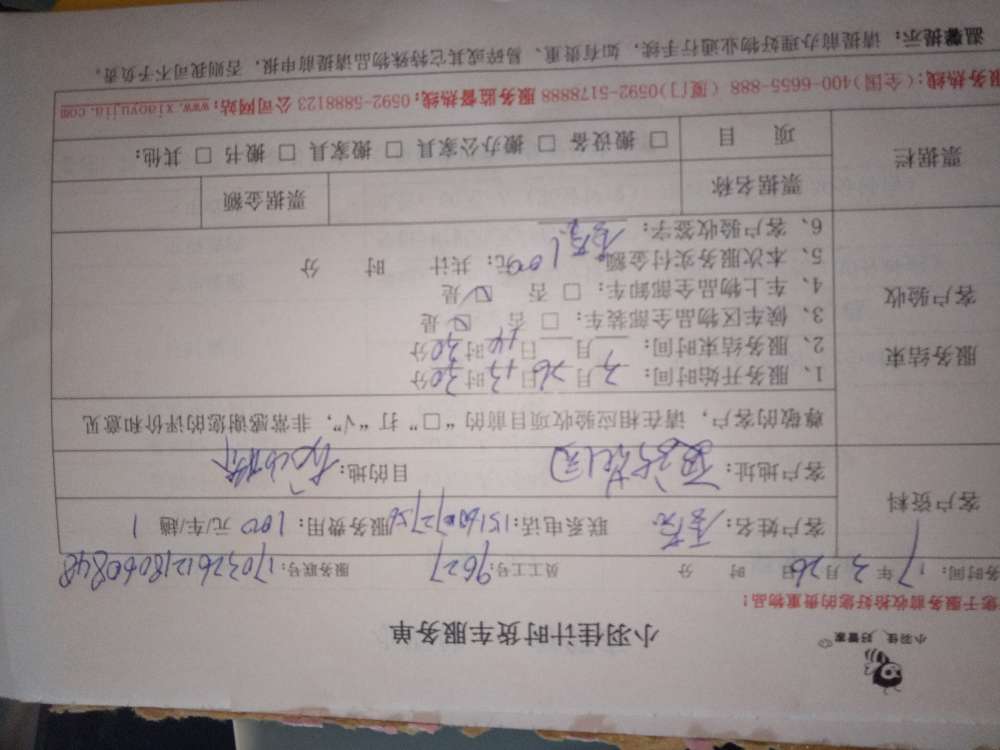 小羽佳 好管家
小羽佳计时货车服务单
您于服务前收拾好您的贵重物品:
务时间: 17年 3月26日 时 分 员工工号: 9627 服务联号: 1703261218060848
客户资料
客户姓名: 联系电话: 服务费用: 100 元/车/趟 1
客户地址: 目的地:
尊敬的客户, 请在相应验收项目前的“□”打“√”, 非常感谢您的评价和意见
服务结束
客户验收
1、服务开始时间: 3月26日13时30分
2、服务结束时间: 月 日14时30分
3、候车区物品全部装车: □ 否 ☑ 是
4、车上物品全部卸车: □ 否 ☑ 是
5、本次服务实付金额 100元: 共计 时 分
6、客户验收签字:
票据栏
票据名称 票据金额
项 目 □ 搬设备 □ 搬办公家具 □ 搬家具 □ 搬书 □ 其他:
服务热线:(全国)400-6655-888 (厦门)0592-5178888 服务监督热线: 0592-5888123 公司网站: www.xiaoyujia.com
温馨提示: 请提前办理好物业通行手续, 如有贵重、易碎或其它特殊物品请提前申报, 否则我司不予负责。